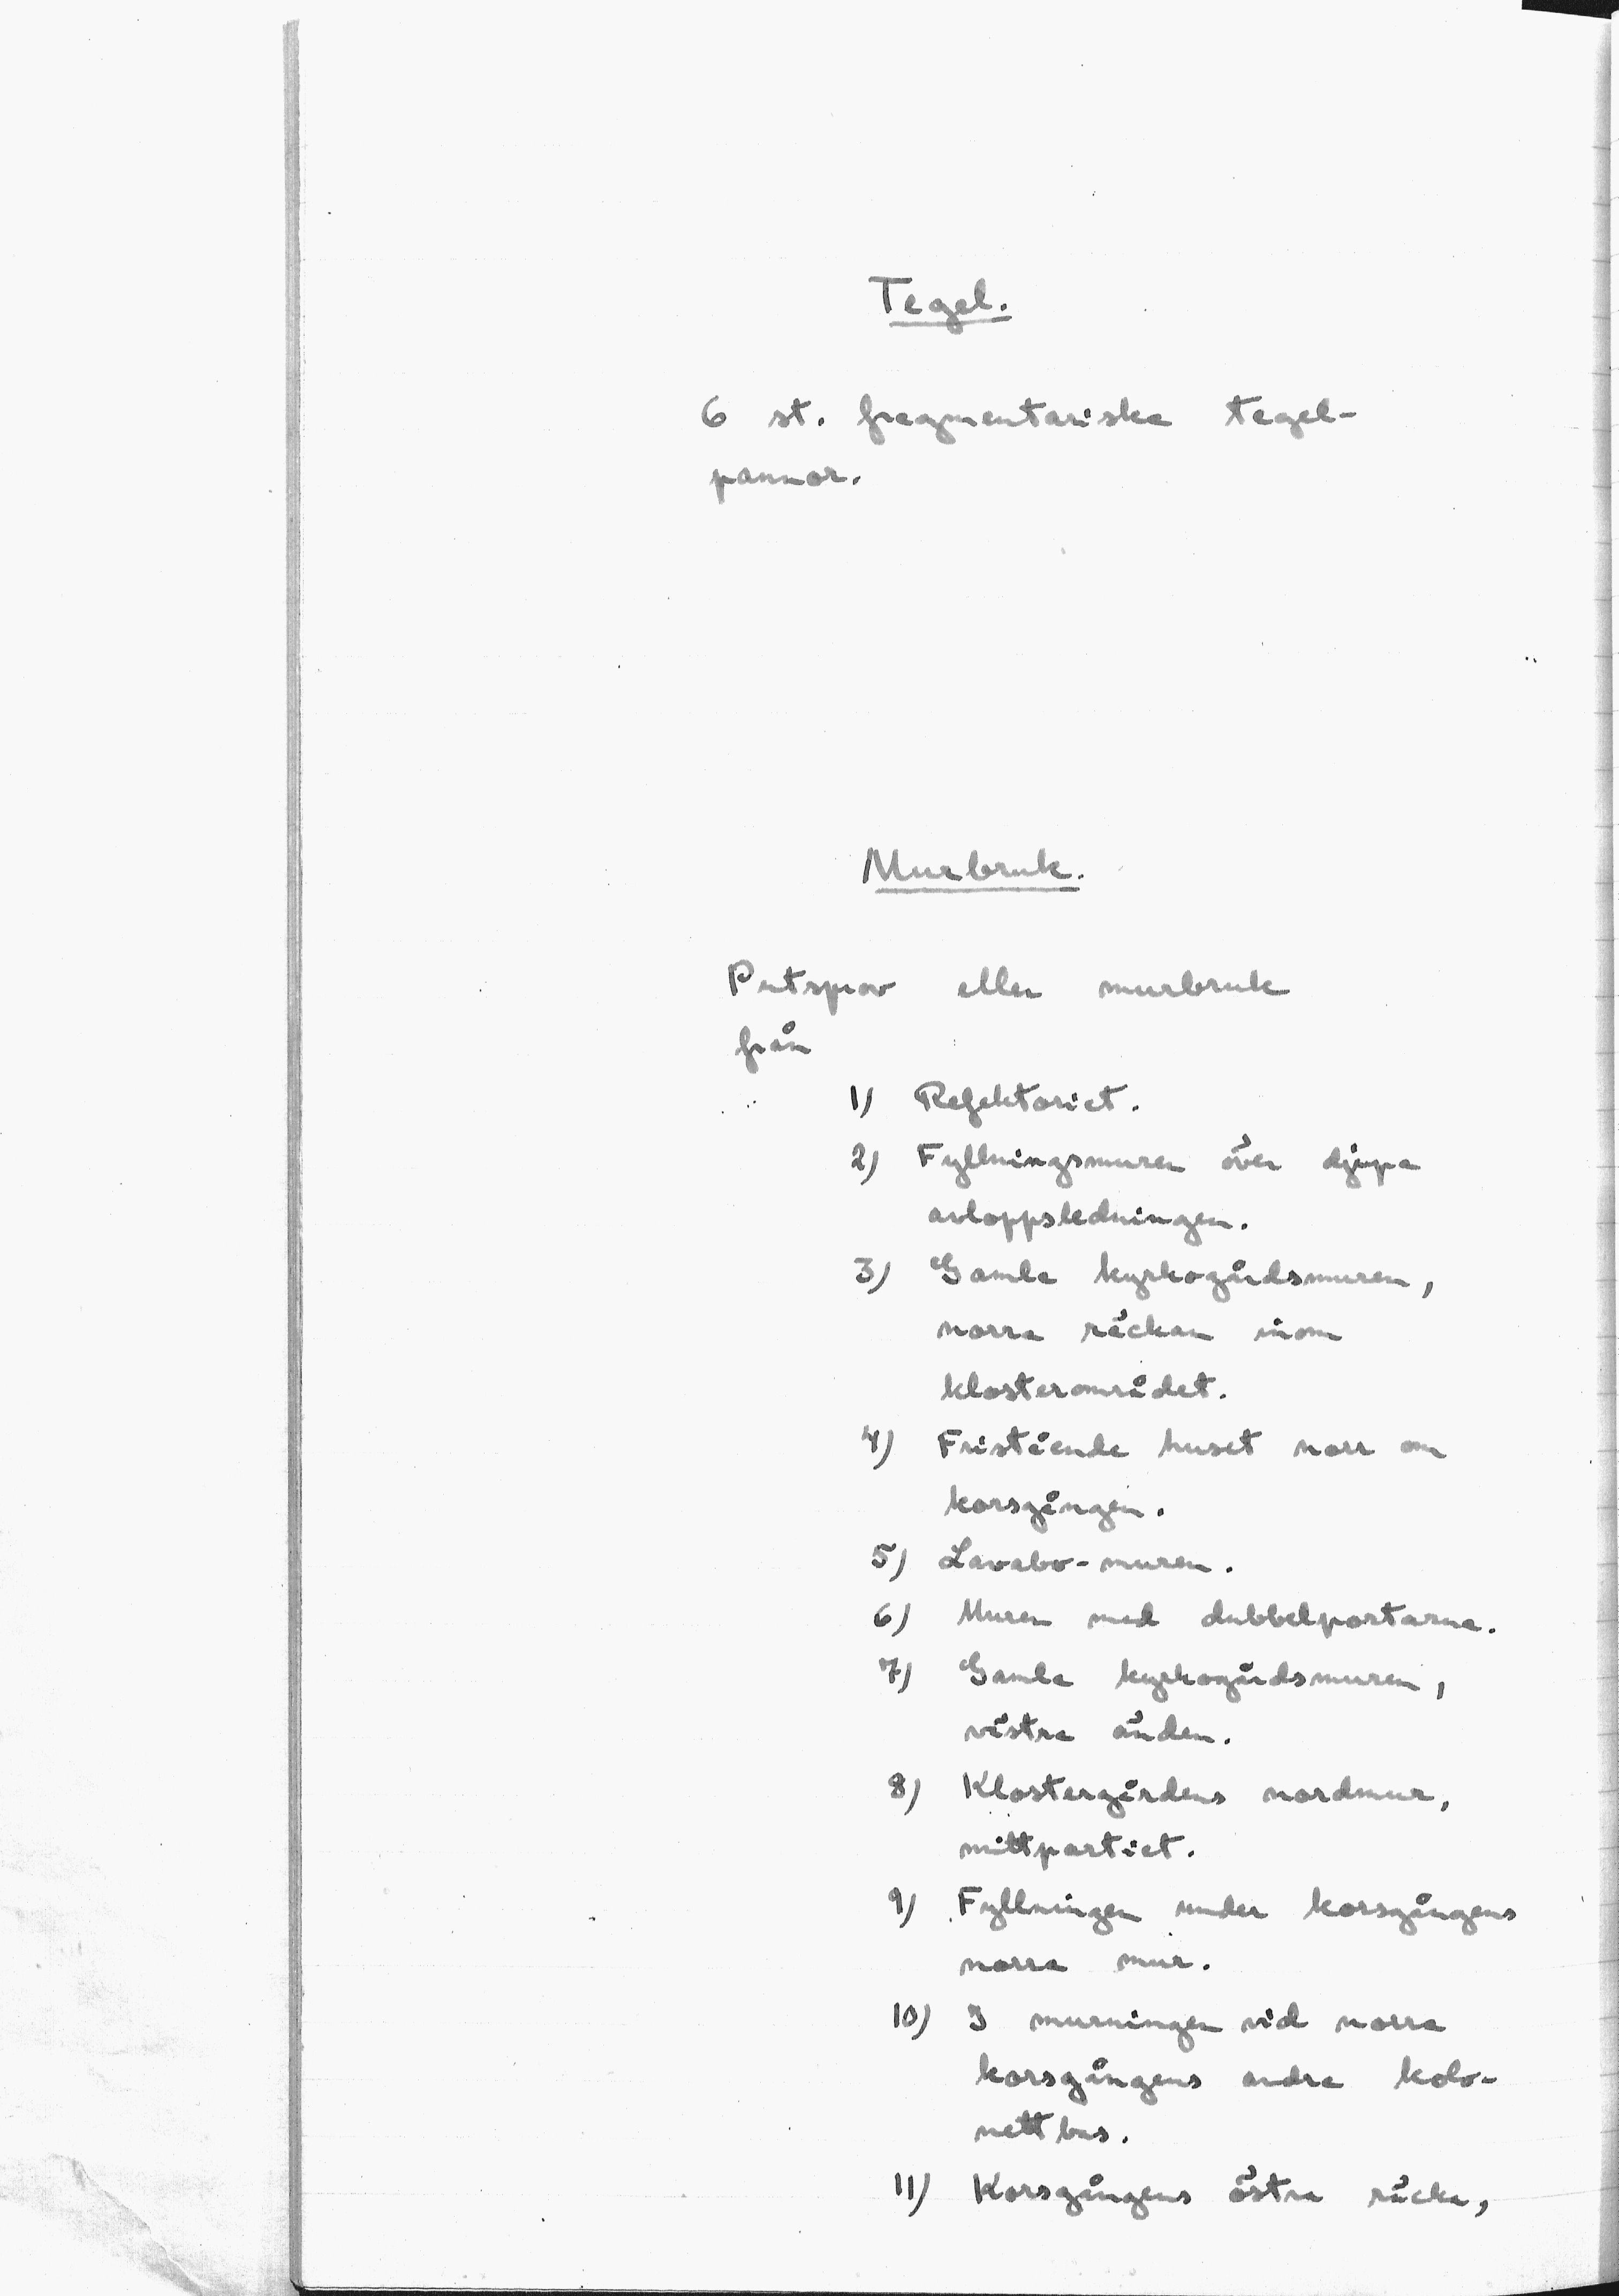 Tegel.
6 st. fragmentariska tegel-
pannor.
Murbruk.
Putsprov eller murbruk
från
1) Refektoriet.
2) Fyllningsmuren över djupa
avloppsledningen.
3) Gamla kyrkogårdsmuren,
norra räckan inom
klosterområdet.
4) Fristående huset norr om
korsgången.
5) Lavabo-muren.
6) Muren med dubbelportarna.
7) Gamla kyrkogårdsmuren,
västra änden.
8) Klostergårdens nordmur,
mittpartiet.
9) Fyllningen under korsgångens
norra mur.
10) I murningen vid norra
korsgångens andra kolo-
nettbas.
11) Korsgångens östra räcka,